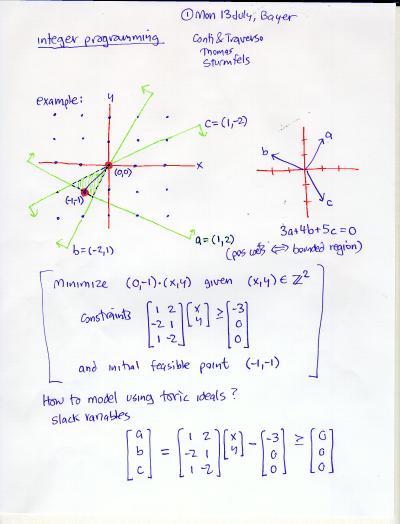 ① Mon 13 July, Bayer
integer programming
Conti & Traverso
Thomas
Sturmfels
example:
y
c=(1,-2)
x
(0,0)
(-1,-1)
a=(1,2)
b=(-2,1)
a
b
c
3a+4b+5c=0
(pos coefs ⟺ bounded region)
Minimize (0,-1)·(x,y) given (x,y) ∈ ℤ²
constraints [1 2; -2 1; 1 -2] [x; y] ≥ [-3; 0; 0]
and initial feasible point (-1,-1)
How to model using toric ideals?
slack variables
[a; b; c] = [1 2; -2 1; 1 -2] [x; y] - [-3; 0; 0] ≥ [0; 0; 0]